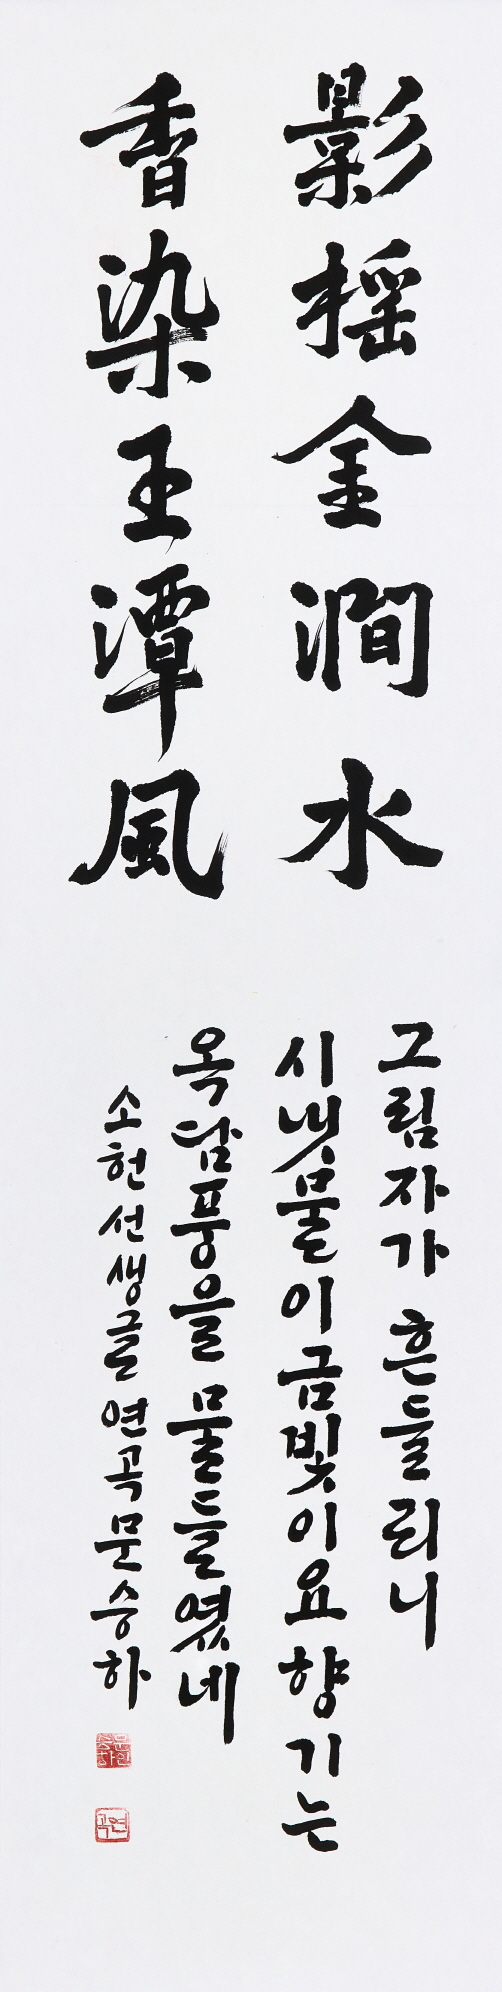 影搖金澗水
香染王潭風
그림자가 흔들리니
시냇물이금빛이요향기는
옥담풍을 물들였네
소헌선생글 연곡문승하
연곡